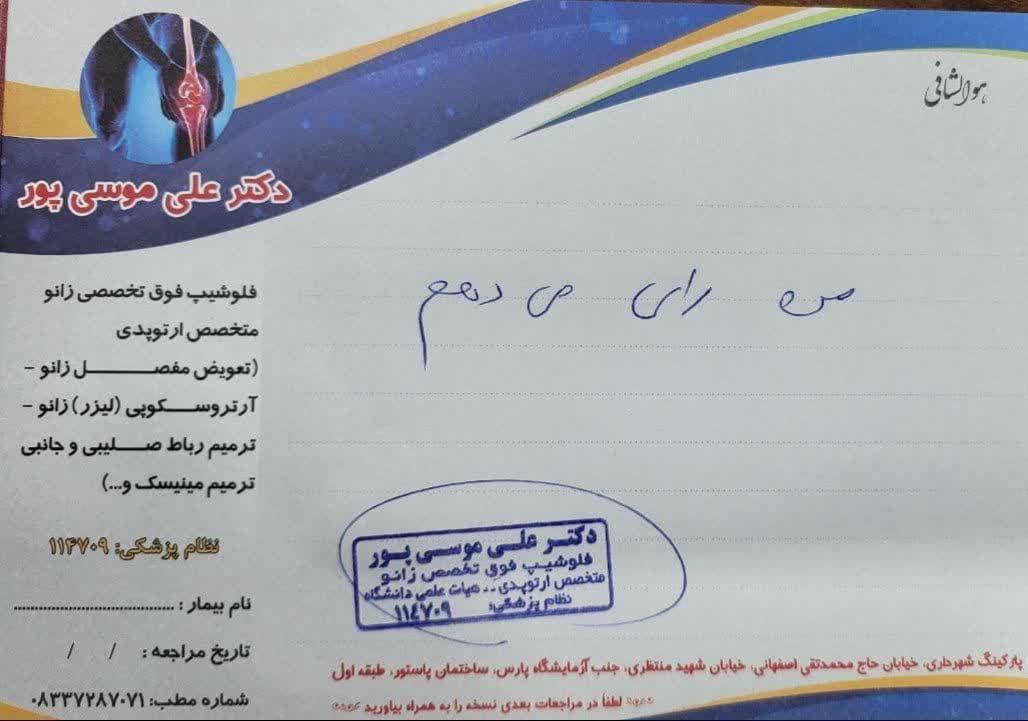 هوالشافی
دکتر علی موسی پور
فلوشیپ فوق تخصصی زانو
متخصص ارتوپدی
(تعویض مفصل زانو -
آرتروسکوپی (لیزر) زانو -
ترمیم رباط صلیبی و جانبی
ترمیم مینیسک و...)
نظام پزشکی: ۱۱۴۷۰۹
نام بیمار :
تاریخ مراجعه : / /
شماره مطب: ۰۸۳۳۷۲۸۷۰۷۱
من رای می دهم
دکتر علی موسی پور
فلوشیپ فوق تخصص زانو
متخصص ارتوپدی.. هیات علمی دانشگاه
نظام پزشکی: ۱۱۴۷۰۹
پارکینگ شهرداری، خیابان حاج محمدتقی اصفهانی، خیابان شهید منتظری، جنب آزمایشگاه پارس، ساختمان پاستور، طبقه اول
لطفا در مراجعات بعدی نسخه را به همراه بیاورید